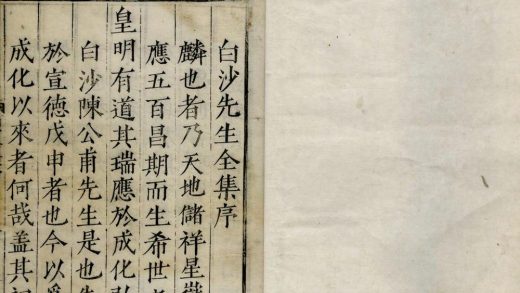 白沙先生全集序
麟也者乃天地儲祥星
應五百昌期而生希世
皇明有道其瑞應於成化
白沙陳公甫先生是也
於宣德戊申者也今以
成化以來者何哉蓋其